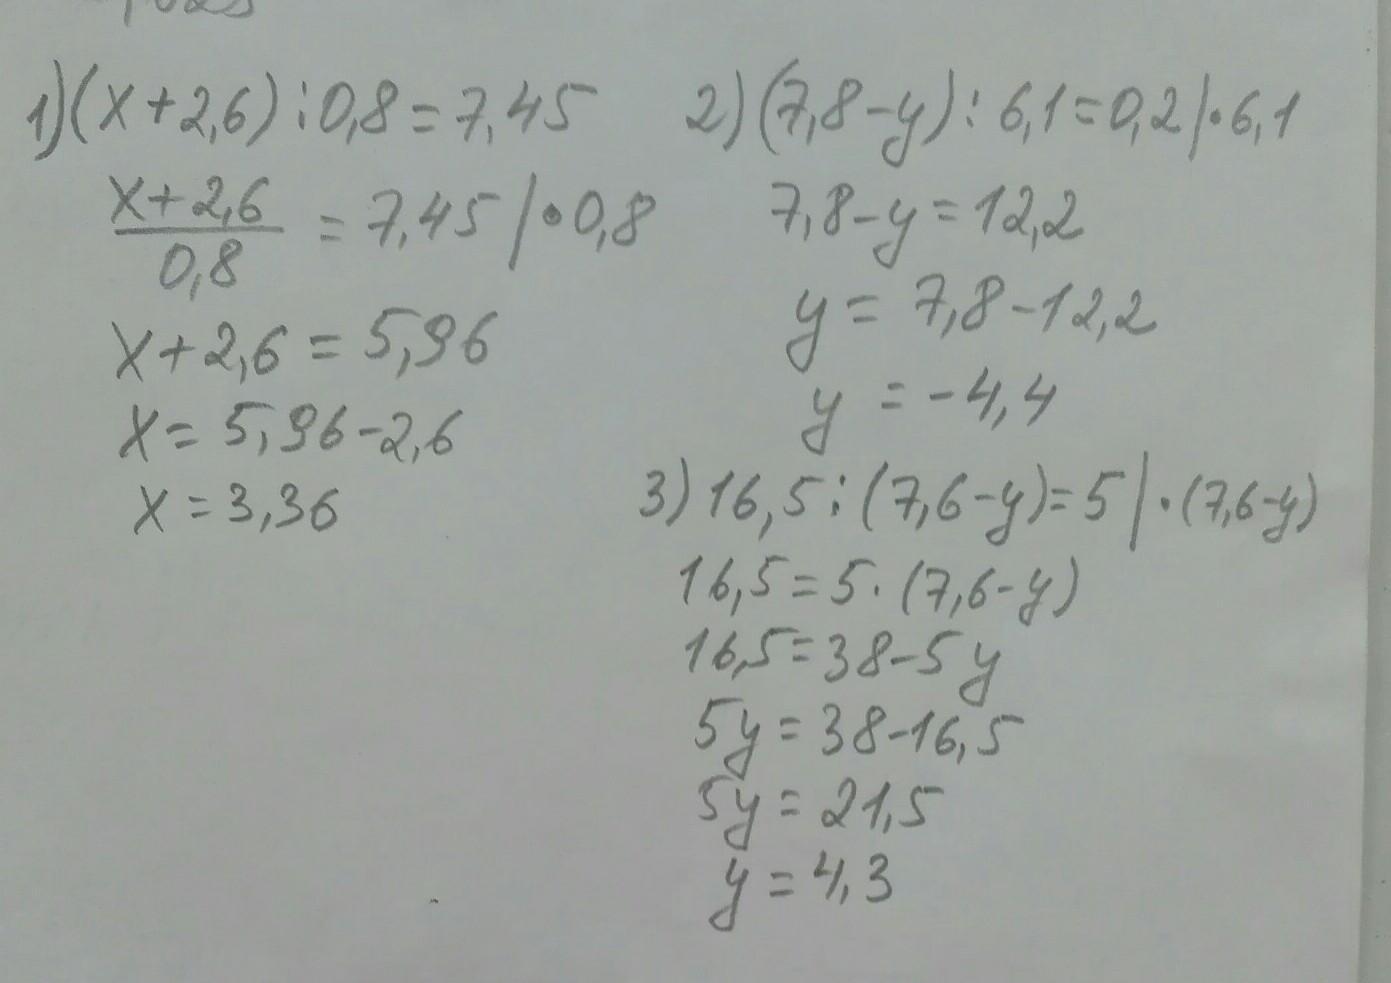 1) (x+2,6) : 0,8 = 7,45
x+2,6 / 0,8 = 7,45 | • 0,8
x+2,6 = 5,96
x = 5,96-2,6
x = 3,36
2) (7,8-y) : 6,1 = 0,2 | • 6,1
7,8-y = 12,2
y = 7,8-12,2
y = -4,4
3) 16,5 : (7,6-y) = 5 | • (7,6-y)
16,5 = 5 • (7,6-y)
16,5 = 38-5y
5y = 38-16,5
5y = 21,5
y = 4,3